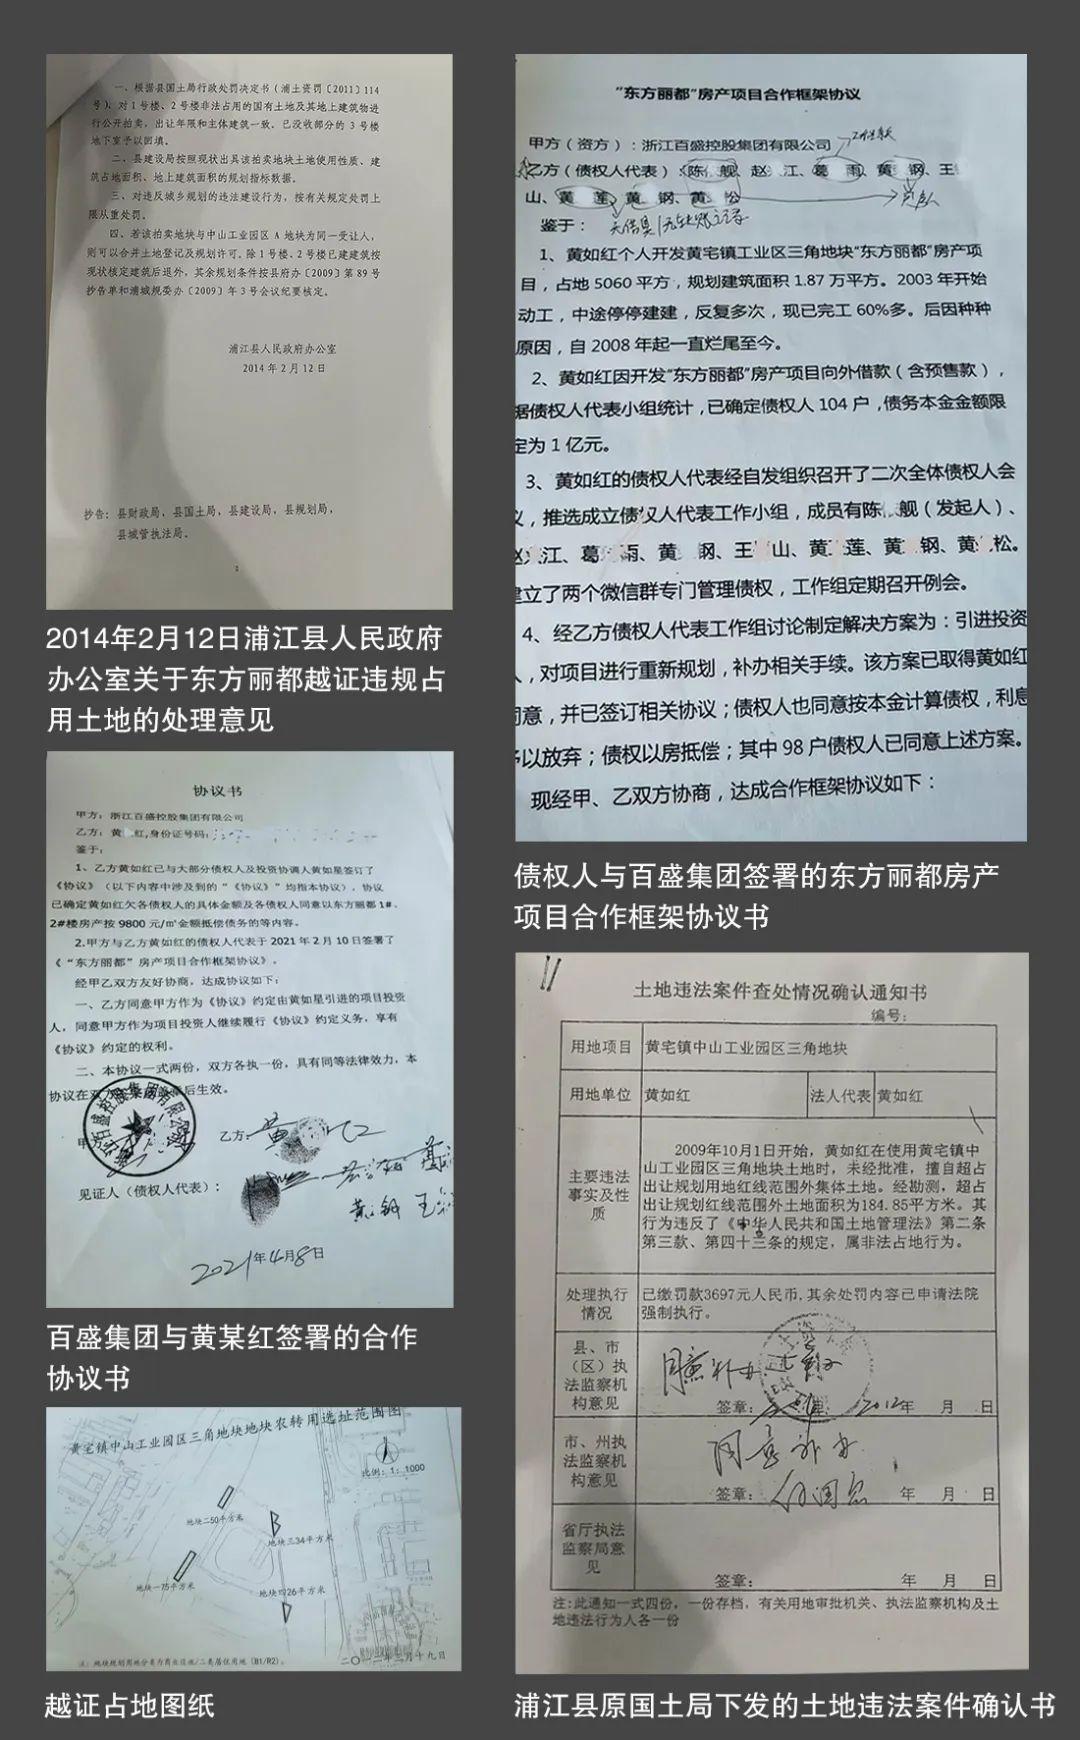 一、根据县国土局行政处罚决定书（浦土资罚【2011】114
号），对1号楼、2号楼非法占用的国有土地及其地上建筑物进
行公开拍卖，出让年限和主体建筑一致。已没收部分的3号楼
地下室予以回填。
二、县建设局按照现状出具该拍卖地块土地使用性质、建
筑占地面积、地上建筑面积的规划指标数据。
三、对违反城乡规划的违法建设行为，按有关规定处罚上
限从重处罚。
四、若该拍卖地块与中山工业园区A地块为同一受让人，
则可以合并土地登记及规划许可。除1号楼、2号楼已建建筑按
现状核定建筑后退外，其余规划条件按县府办【2009】第89号
抄告单和浦城规委办【2009】年3号会议纪要核定。
浦江县人民政府办公室
2014年2月12日
抄告：县财政局、县国土局、县建设局、县规划局，
县城管执法局。
2014年2月12日浦江县人民政府
办公室关于东方丽都越证违规占
用土地的处理意见
协议书
甲方：浙江百盛控股集团有限公司
乙方：黄 红,身份证号码：
鉴于：
1、乙方黄如红已与大部分债权人及投资协调人黄如星签订了
《协议》（以下内容中涉及到的“《协议》”均指本协议），协议
已确定黄如红欠各债权人的具体金额及各债权人同意以东方丽都1#、
2#楼房产按9800元/㎡金额抵偿债务的等内容。
2.甲方与乙方黄如红的债权人代表于2021年2月10日签署了
《“东方丽都”房产项目合作框架协议》。
经甲乙双方友好协商，达成协议如下：
一、乙方同意甲方作为《协议》约定由黄如星引进的项目投资
人，同意甲方作为项目投资人继续履行《协议》约定义务，享有
《协议》约定的权利。
二、本协议一式两份，双方各执一份，具有同等法律效力，本
协议在双方 后生效。
百盛控股集团有限公司
乙方：黄 红
见证人（债权人代表）：
黄 钢 王
2021年4月8日
百盛集团与黄某红签署的合作
协议书
黄宅镇中山工业园区三角地块地块农转用选址范围图
比例：1：1000
地块二50平方米
地块三34平方米
地块一75平方米
地块四26平方米
注：地块规划用地分类为商业设施/二类居住用地（B1/R2）。
月十九日
越证占地图纸
“东方丽都”房产项目合作框架协议
甲方（资方）：浙江百盛控股集团有限公司
乙方（债权人代表）：陈 舰、赵 江、葛 雨、黄 钢、王
山、黄 莲、黄 钢、黄 松
鉴于：
1、黄如红个人开发黄宅镇工业区三角地块“东方丽都”房产项
目，占地5060平方，规划建筑面积1.87万平方。2003年开始
动工，中途停停建建，反复多次，现已完工60%多。后因种种
原因，自2008年起一直烂尾至今。
2、黄如红因开发“东方丽都”房产项目向外借款（含预售款），
据债权人代表小组统计，已确定债权人104户，债务本金金额限
定为1亿元。
3、黄如红的债权人代表经自发组织召开了二次全体债权人会
议，推选成立债权人代表工作小组，成员有陈 舰（发起人）、
赵 江、葛 雨、黄 钢、王 山、黄 莲、黄 钢、黄 松。
建立了两个微信群专门管理债权，工作组定期召开例会。
4、经乙方债权人代表工作组讨论制定解决方案为：引进投资
人，对项目进行重新规划，补办相关手续。该方案已取得黄如红
同意，并已签订相关协议；债权人也同意按本金计算债权，利息
予以放弃；债权以房抵偿；其中98户债权人已同意上述方案。
现经甲、乙双方协商，达成合作框架协议如下：
债权人与百盛集团签署的东方丽都房产
项目合作框架协议书
土地违法案件查处情况确认通知书
编号：
用地项目 黄宅镇中山工业园区三角地块
用地单位 黄如红 法人代表 黄如红
主要违法
事实及性
质
2009年10月1日开始，黄如红在使用黄宅镇中
山工业园区三角地块土地时，未经批准，擅自超占
出让规划用地红线范围外集体土地。经勘测，超占
出让规划红线范围外土地面积为184.85平方米。其
行为违反了《中华人民共和国土地管理法》第二条
第三款、第四十三条的规定，属非法占地行为。
处理执行
情况
已缴罚款3697元人民币,其余处罚内容已申请法院
强制执行。
县、市
（区）执
法监察机
构意见
同意补办
签章： 2012年 月 日
市、州执
法监察机
构意见
同意补办
签章： 年 月 日
省厅执法
监察局意
见
签章： 年 月 日
注:此通知一式四份，一份存档，有关用地审批机关、执法监察机构及土
地违法行为人各一份
浦江县原国土局下发的土地违法案件确认书